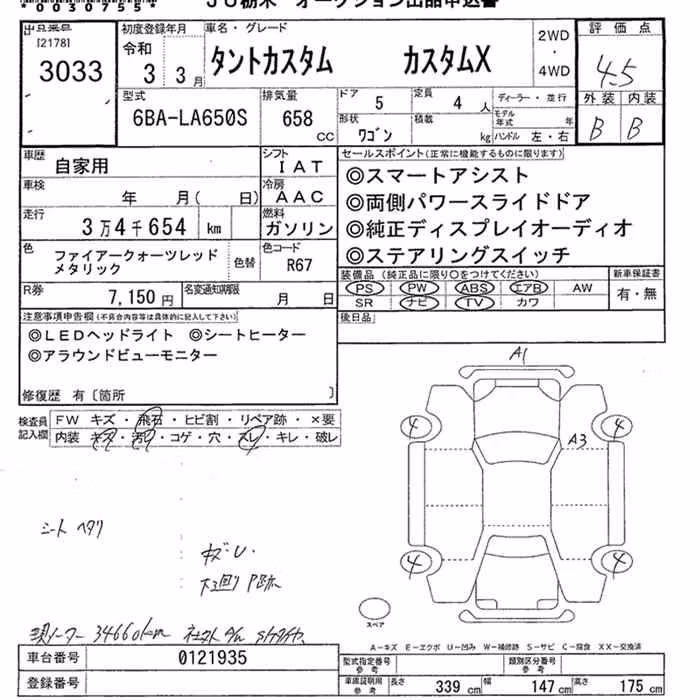 *0030755*
JU栃木 オークション出品申込書
出品番号
[2178]
3033
初度登録年月
令和
3 3月
車名・グレード
タントカスタム カスタムX
2WD
・
4WD
評価点
4.5
外装 内装
B B
型式
6BA-LA650S
排気量
658
CC
ドア 5
定員 4 人
形状 ワゴン
積載 kg
ディーラー・並行
モデル年式 年
ハンドル 左・右
車歴
自家用
シフト
IAT
車検
年 月( 日)
冷房
AAC
走行
3万4千654 km
燃料
ガソリン
色
ファイアークォーツレッド
メタリック
色替
色コード
R67
R券
7,150円
名変通知期限
月 日
セールスポイント(正常に機能するものに限ります)
◎スマートアシスト
◎両側パワースライドドア
◎純正ディスプレイオーディオ
◎ステアリングスイッチ
装備品 (純正品に限り○をつけてください)
PS PW ABS エアB AW
SR ナビ TV カワ
新車保証書
有・無
後日品
注意事項申告欄(不具合内容等は具体的に記入して下さい)
◎LEDヘッドライト ◎シートヒーター
◎アラウンドビューモニター
修復歴 有〔箇所 〕
検査員
記入欄
FW キズ・飛石・ヒビ割・リペア跡・×要
内装 キズ・汚れ・コゲ・穴・スレ・キレ・破レ
A1
4
4
A3
4
4
スペア
シート ヘタリ
キズ・U・
下回り P跡
現メーター 34660km
A-キズ E-エクボ U-凹み W-補修跡 S-サビ C-腐食 XX-交換済
車台番号
0121935
登録番号
型式指定番号
参考
類別区分番号
参考
車庫証明用
参考
長さ 339 cm 幅 147 cm 高さ 175 cm